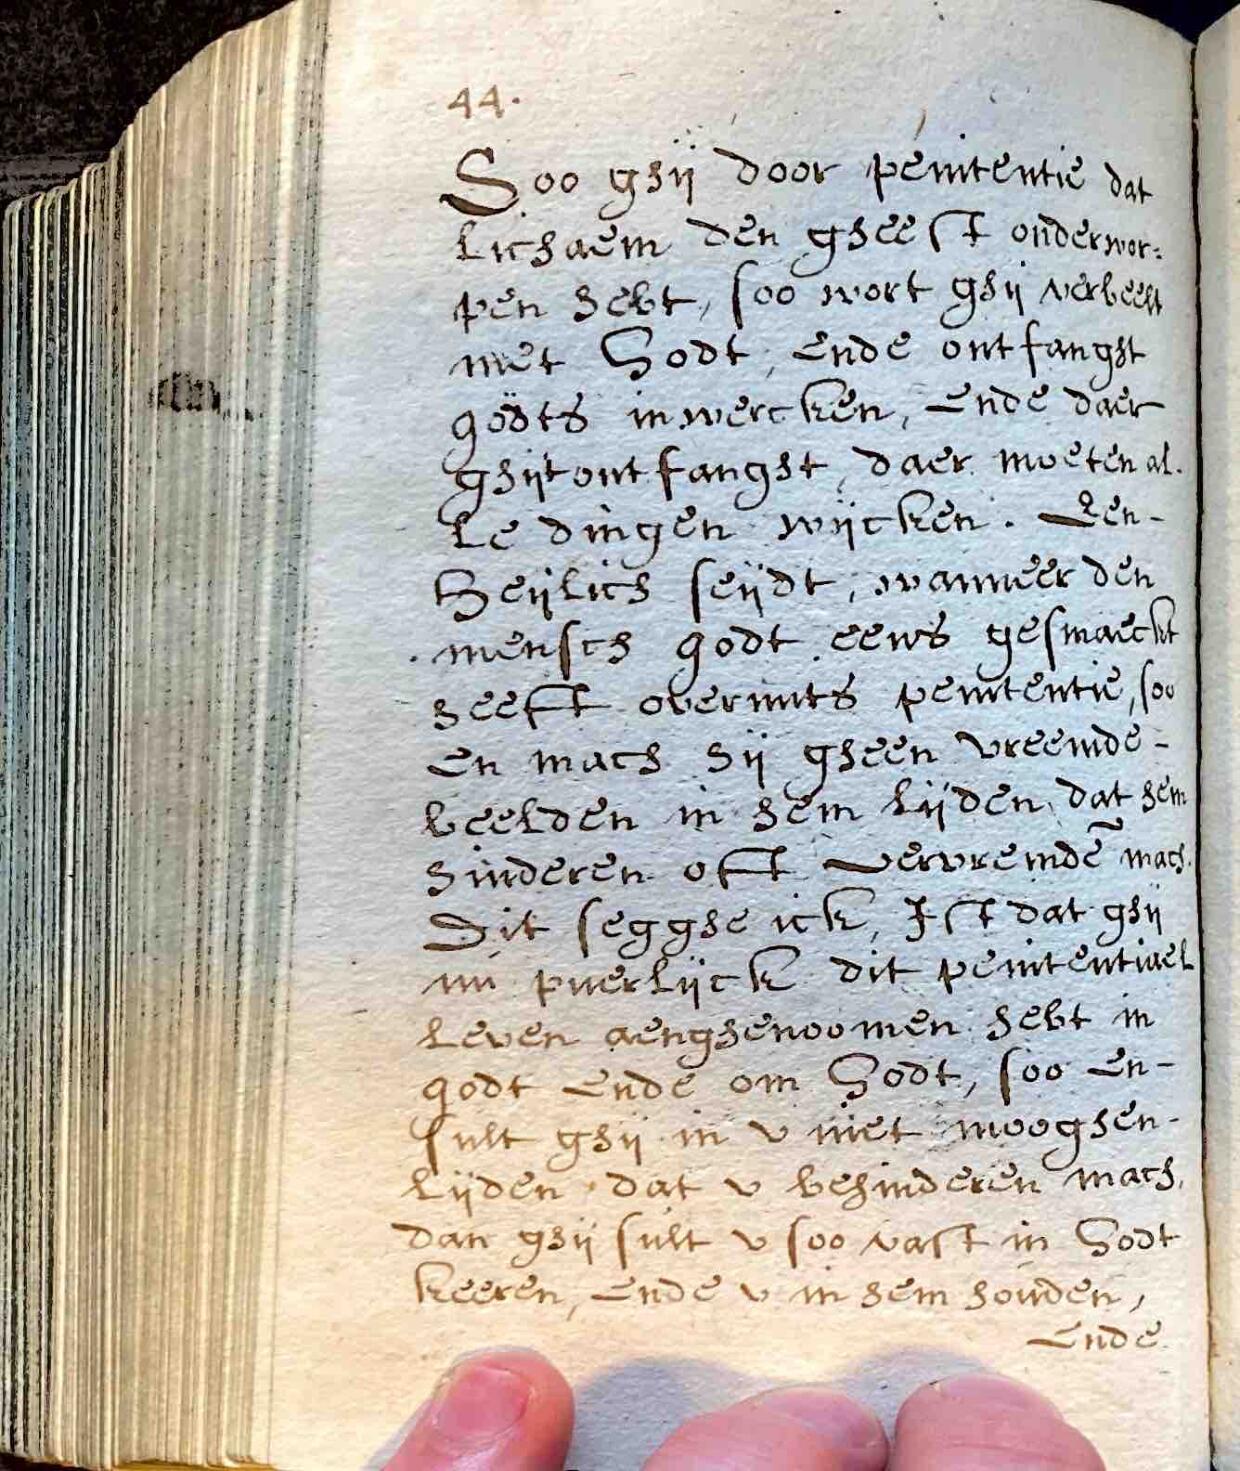 44.
Soo ghij door penitentie dat
lichaem den gheest onderwor:
pen hebt, soo wort ghij verbeelt
met Godt, ende ontfangst
godts inwercken, ende daer
ghijt ontfanght daer moeten al.
le dingen wijcken. Een-
Heijlich seijdt, wanneer den
mensch godt eens gesmaeckt
heeft overmits penitentie, soo
en mach hij gheen vreemde-
beelden in hem lijden, dat hem
hinderen oft vervremdē mach.
Dit segghe ick, Ist dat ghij
nu puerlijck dit penitentiael
leven aenghenoomen hebt in
godt ende om Godt, soo en-
sult ghij in v niet mooghen-
lijden dat v behinderen mach,
dan ghij sult v soo vast in Godt
keeren, ende v in hem houden,
Ende